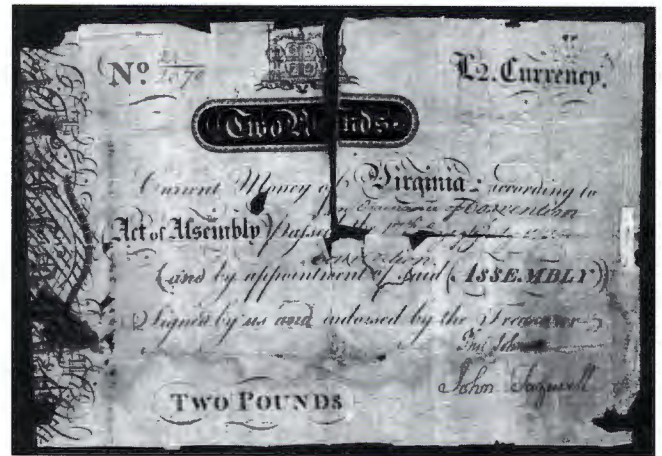 No. 1870 £2. Currency.
Two Pounds
Current Money of Virginia according to
an Ordinance of Convention
Act of Assembly Passed the
Convention
(and by appointment of said (ASSEMBLY)
Signed by us and endorsed by the Treasurer
John Tazewell
TWO POUNDS